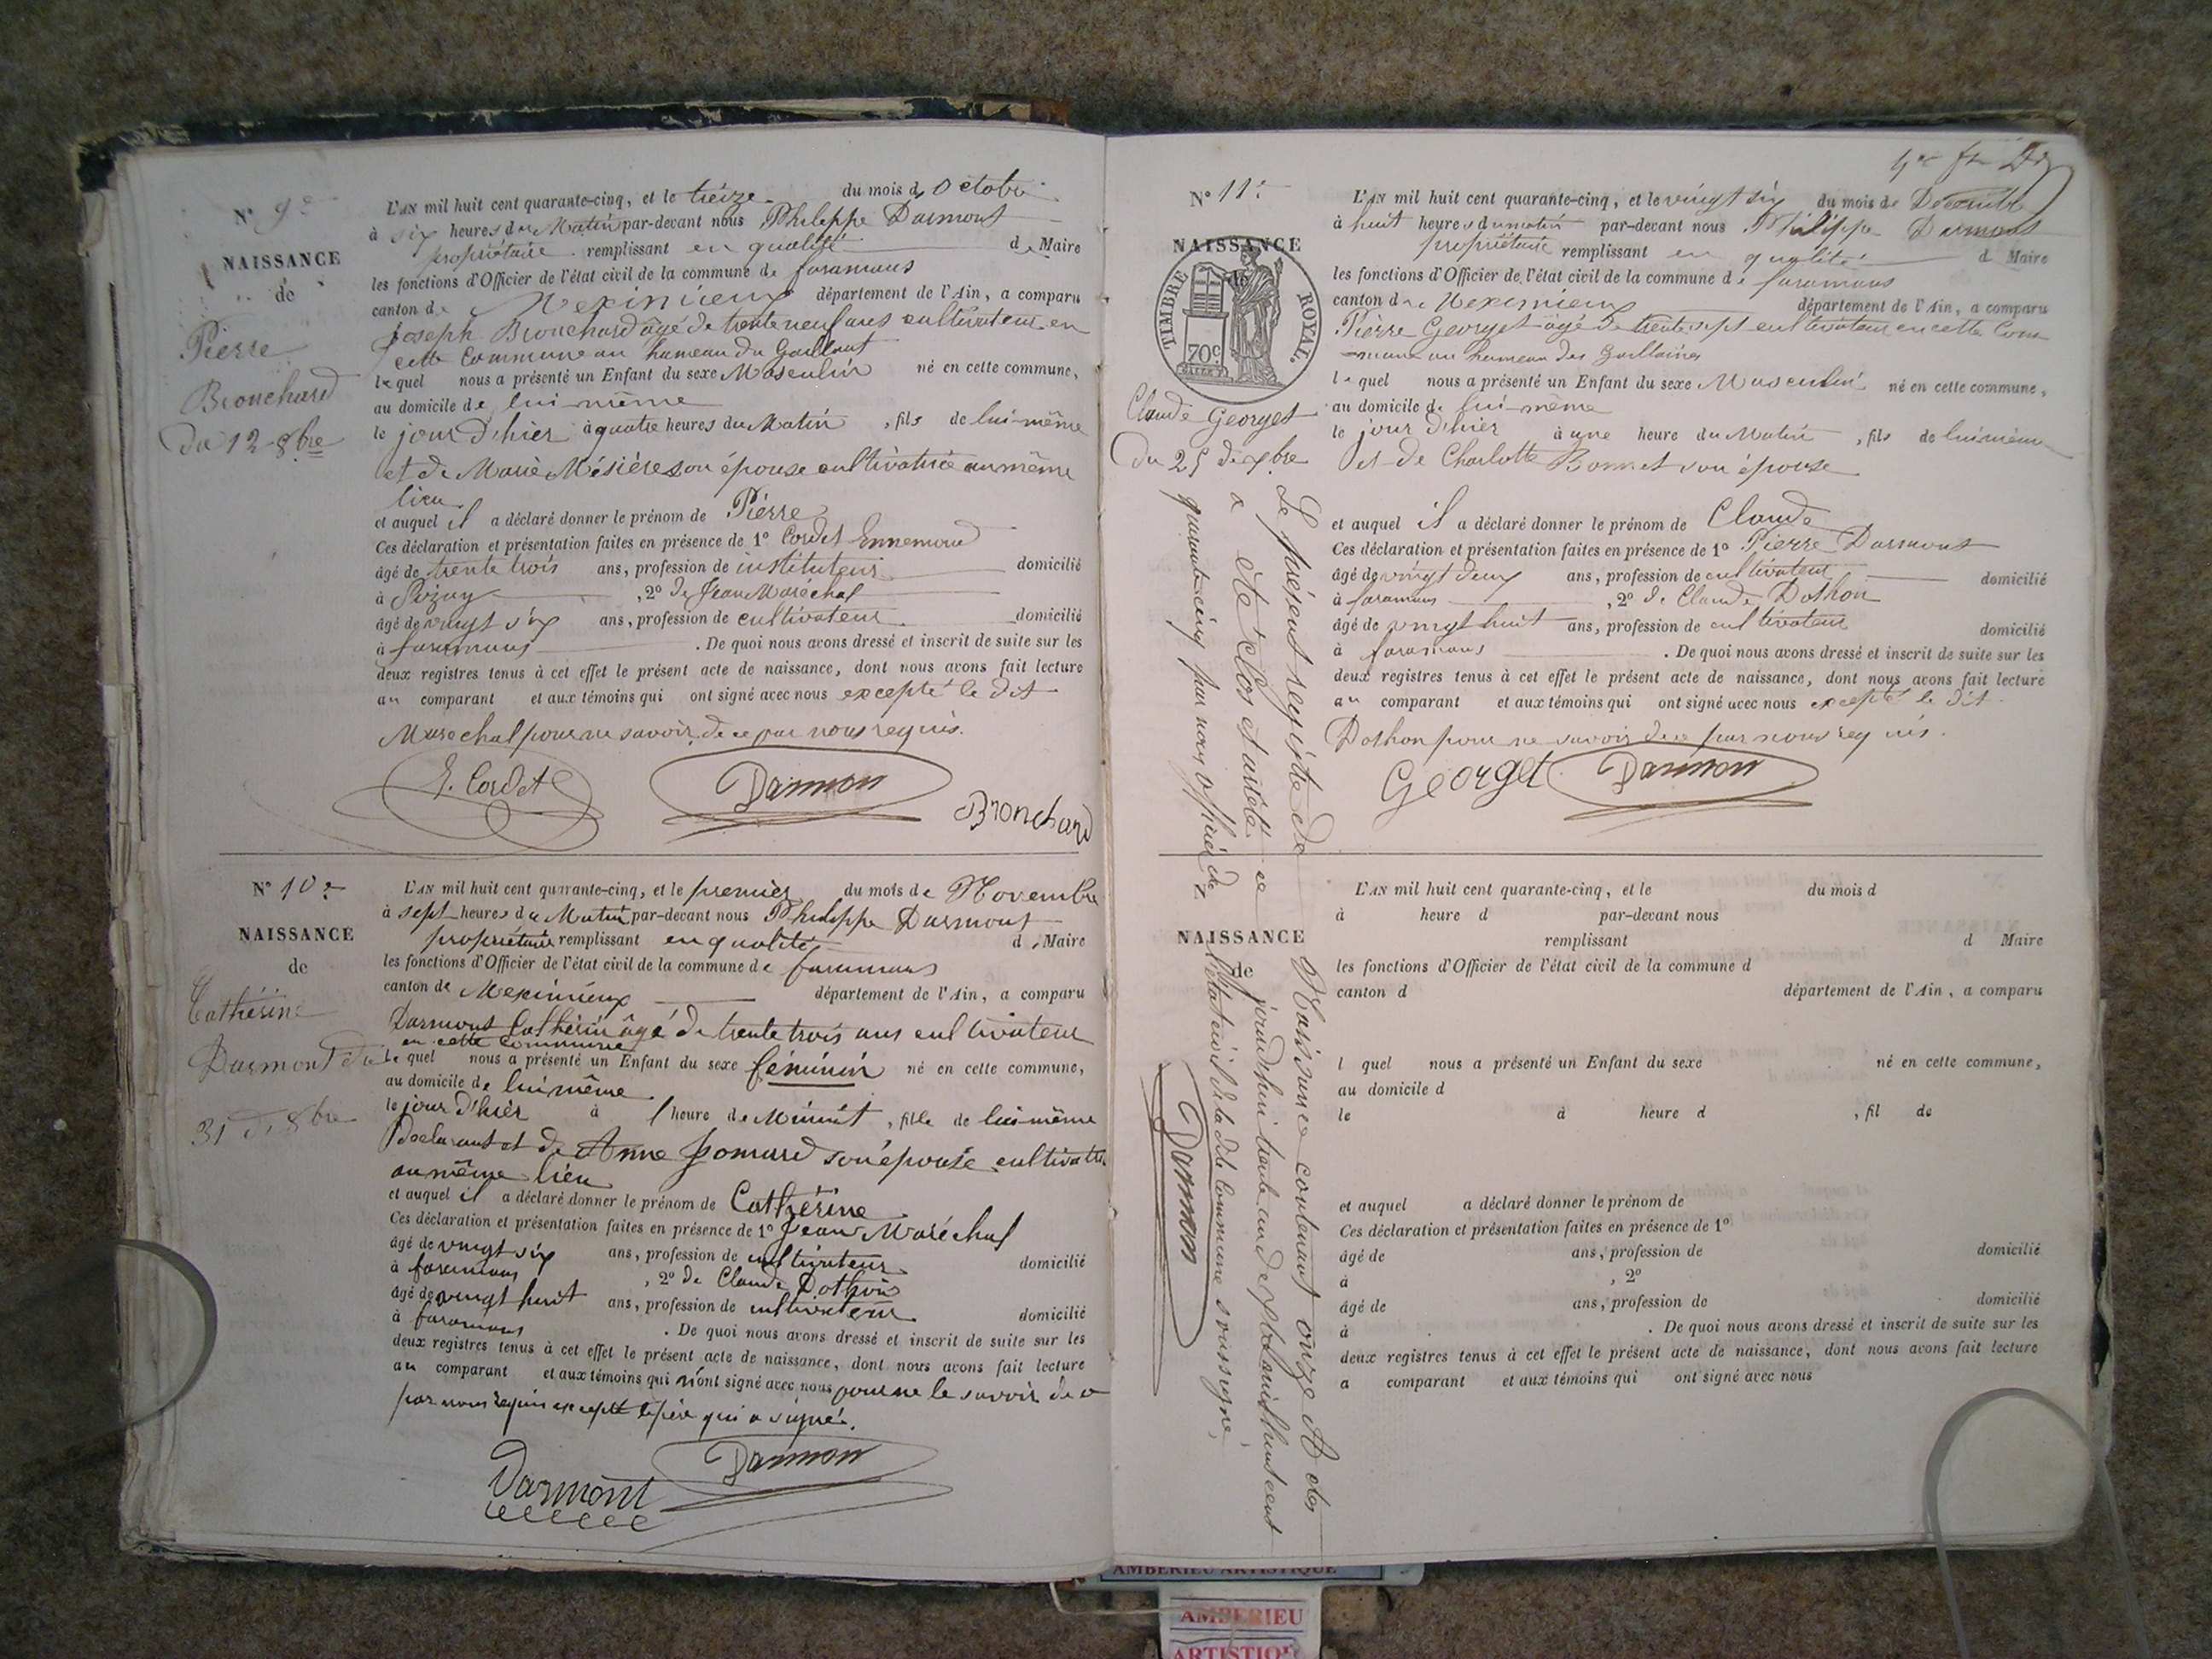 N° 9e
NAISSANCE
de
Pierre
Bronchard
Du 12 8bre
L'AN mil huit cent quarante-cinq, et le treize du mois d'Octobre
à six heures du Matin par-devant nous Philippe Darmont
propriétaire remplissant en qualité de Maire
les fonctions d'Officier de l'état civil de la commune de faramans
canton de Meximieux département de l'Ain, a comparu
Joseph Bronchard âgé de trente neuf ans cultivateur en
cette Commune au hameau du
le quel nous a présenté un Enfant du sexe Masculin né en cette commune,
au domicile de lui-même
le jour d'hier à quatre heures du Matin, fils de lui-même
et de Marie Mésière son épouse cultivatrice au même
lieu
et auquel il a déclaré donner le prénom de Pierre
Ces déclaration et présentation faites en présence de 1° Cordet Ennemond
âgé de trente trois ans, profession de instituteur domicilié
à Pizay, 2° de Jean Maréchal
âgé de vingt six ans, profession de cultivateur domicilié
à faramans. De quoi nous avons dressé et inscrit de suite sur les
deux registres tenus à cet effet le présent acte de naissance, dont nous avons fait lecture
au comparant et aux témoins qui ont signé avec nous excepté le dit
Marechal pour ne savoir de ce par nous requis.
E. Cordet Darmon Bronchard
N° 10e
NAISSANCE
de
Cathérine
Darmont du
31 de 8bre
L'AN mil huit cent quarante-cinq, et le premier du mois de Novembre
à sept heures du Matin par-devant nous Philippe Darmont
propriétaire remplissant en qualité de Maire
les fonctions d'Officier de l'état civil de la commune de faramans
canton de Meximieux département de l'Ain, a comparu
Darmont Cathérin âgé de trente trois ans cultivateur
en cette commune
le quel nous a présenté un Enfant du sexe féminin né en cette commune,
au domicile de lui même
le jour d'hier à 1 heure de Minuit, fille de lui même
Déclarant et de Anne Pomard son épouse cultivatri
au même lieu
et auquel il a déclaré donner le prénom de Cathérine
Ces déclaration et présentation faites en présence de 1° Jean Maréchal
âgé de vingt six ans, profession de cultivateur domicilié
à faramans, 2° de Claude Dothon
âgé de vingt huit ans, profession de cultivateur domicilié
à faramans. De quoi nous avons dressé et inscrit de suite sur les
deux registres tenus à cet effet le présent acte de naissance, dont nous avons fait lecture
au comparant et aux témoins qui n'ont signé avec nous pour ne le savoir de ce
par nous requis excepté le père qui a signé.
Darmont Darmon
N° 11e
NAISSANCE
de
TIMBRE ROYAL.
70c
Claude Georget
Du 25 dexbre
L'AN mil huit cent quarante-cinq, et le vingt six du mois de Décembre
à huit heures du matin par-devant nous Philippe Darmont
propriétaire remplissant en qualité d Maire
les fonctions d'Officier de l'état civil de la commune de faramans
canton de Meximieux département de l'Ain, a comparu
Pierre Georget âgé de trente sept cultivateur en cette Com
-mune au hameau des
le quel nous a présenté un Enfant du sexe Masculin né en cette commune,
au domicile de lui-même
le jour d'hier à une heure du Matin, fils de lui même
et de Charlotte Bonnet son épouse
et auquel il a déclaré donner le prénom de Claude
Ces déclaration et présentation faites en présence de 1° Pierre Darmont
âgé de vingt deux ans, profession de cultivateur domicilié
à faramans, 2° de Claude Dothon
âgé de vingt huit ans, profession de cultivateur domicilié
à faramans. De quoi nous avons dressé et inscrit de suite sur les
deux registres tenus à cet effet le présent acte de naissance, dont nous avons fait lecture
au comparant et aux témoins qui ont signé avec nous excepté le dit
Dothon pour ne savoir de ce par nous requis.
Georget Darmon
Le présent registre de Naissance contenant onze Actes
a été clos et arrêté ce jourd'hui trente un dexbre mil huit cent
quarante-cinq par nous officier de l'état civil de la dte Commune soussigné,
Darmon
NAISSANCE
de
L'AN mil huit cent quarante-cinq, et le du mois d
à heure d par-devant nous
remplissant d Maire
les fonctions d'Officier de l'état civil de la commune d
canton d département de l'Ain, a comparu
l quel nous a présenté un Enfant du sexe né en cette commune,
au domicile d
le à heure d, fil de
et auquel a déclaré donner le prénom de
Ces déclaration et présentation faites en présence de 1°
âgé de ans, profession de domicilié
à , 2°
âgé de ans, profession de domicilié
à . De quoi nous avons dressé et inscrit de suite sur les
deux registres tenus à cet effet le présent acte de naissance, dont nous avons fait lecture
a comparant et aux témoins qui ont signé avec nous
AMBERIEU ARTISTIQUE
AMBERIEU
ARTISTIQ